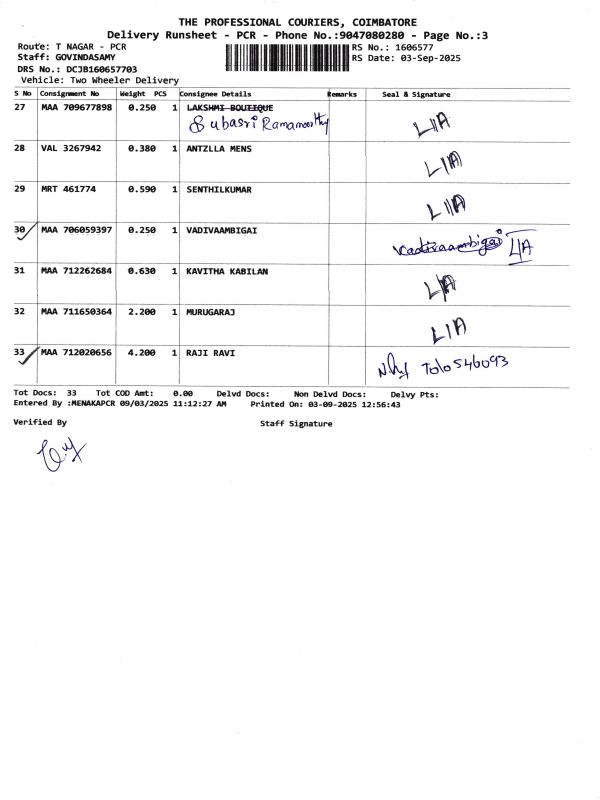 THE PROFESSIONAL COURIERS, COIMBATORE
Delivery Runsheet - PCR - Phone No.:9047080280 - Page No.:3
Route: T NAGAR - PCR RS No.: 1606577
Staff: GOVINDASAMY RS Date: 03-Sep-2025
DRS No.: DCJB160657703
Vehicle: Two Wheeler Delivery
S No Consignment No Weight PCS Consignee Details Remarks Seal & Signature
27 MAA 709677898 0.250 1 LAKSHMI BOUTIQUE
Subasri Ramamoorthy L/A
28 VAL 3267942 0.380 1 ANTZLLA MENS
L/A
29 MRT 461774 0.590 1 SENTHILKUMAR
L/A
30 MAA 706059397 0.250 1 VADIVAAMBIGAI
Vadivaambigai L/A
31 MAA 712262684 0.630 1 KAVITHA KABILAN
L/A
32 MAA 711650364 2.200 1 MURUGARAJ
L/A
33 MAA 712020656 4.200 1 RAJI RAVI
7010546093
Tot Docs: 33 Tot COD Amt: 0.00 Delvd Docs: Non Delvd Docs: Delvy Pts:
Entered By :MENAKAPCR 09/03/2025 11:12:27 AM Printed On: 03-09-2025 12:56:43
Verified By Staff Signature